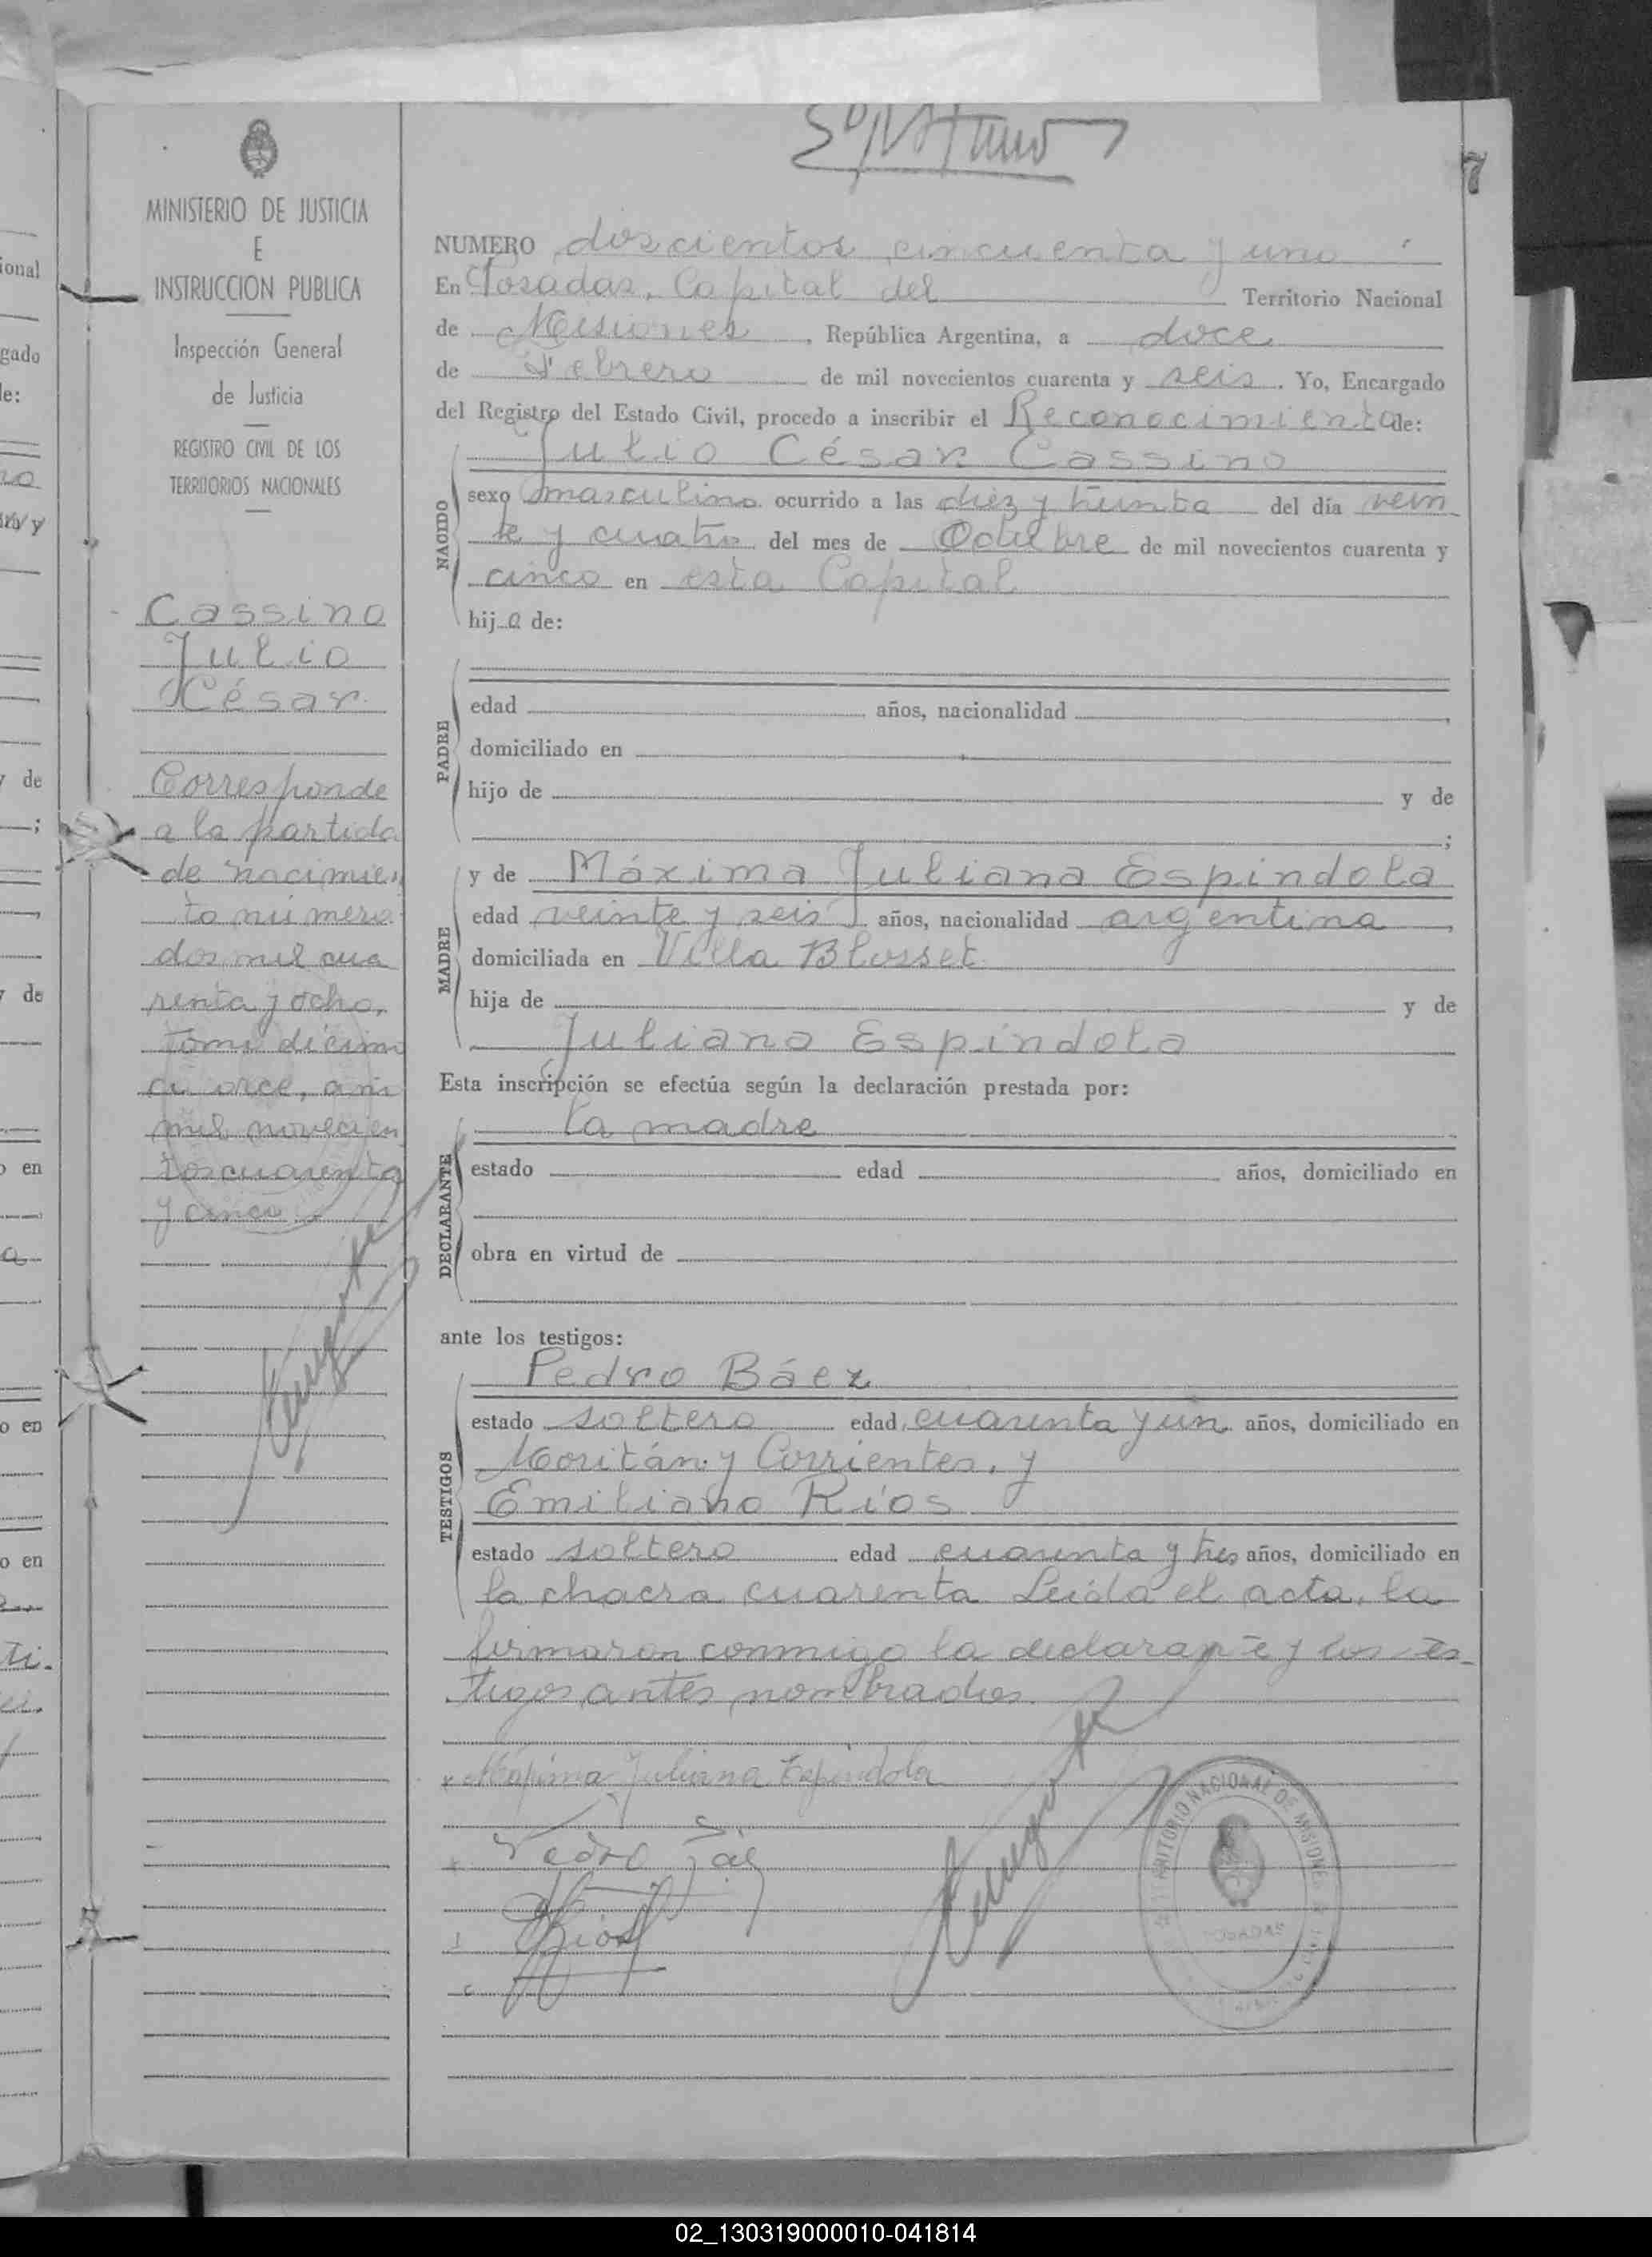 7
MINISTERIO DE JUSTICIA
E
INSTRUCCION PUBLICA
Inspección General
de Justicia
REGISTRO CIVIL DE LOS
TERRITORIOS NACIONALES
Cassino
Julio
César
Corresponde
a la partida
de nacimien
to número
dos mil cua
renta y ocho,
tomo décimo
año
mil novecien
tos cuarenta
y cinco
NUMERO doscientos cincuenta y uno
En Posadas, Capital del Territorio Nacional
de Misiones, República Argentina, a doce
de Febrero de mil novecientos cuarenta y seis. Yo, Encargado
del Registro del Estado Civil, procedo a inscribir el Reconocimiento de:
NACIDO
Julio César Cassino
sexo masculino ocurrido a las diez y treinta del día vein
te y cuatro del mes de Octubre de mil novecientos cuarenta y
cinco en esta Capital
hijo de:
PADRE
edad años, nacionalidad ,
domiciliado en
hijo de y de
;
MADRE
y de Máxima Juliana Espíndola
edad veinte y seis años, nacionalidad argentina,
domiciliada en Villa Blosset
hija de y de
Juliana Espíndola
Esta inscripción se efectúa según la declaración prestada por:
DECLARANTE
la madre
estado edad años, domiciliado en
obra en virtud de
ante los testigos:
TESTIGOS
Pedro Báez
estado soltero edad cuarenta y un años, domiciliado en
Moritán y Corrientes, y
Emiliano Ríos
estado soltero edad cuarenta y tres años, domiciliado en
la chacra cuarenta. Leída el acta, la
firmaron conmigo la declarante y los tes-
tigos antes nombrados.
Máxima Juliana Espindola
Pedro Báez
Ríos
TERRITORIO NACIONAL DE MISIONES
POSADAS
02_130319000010-041814